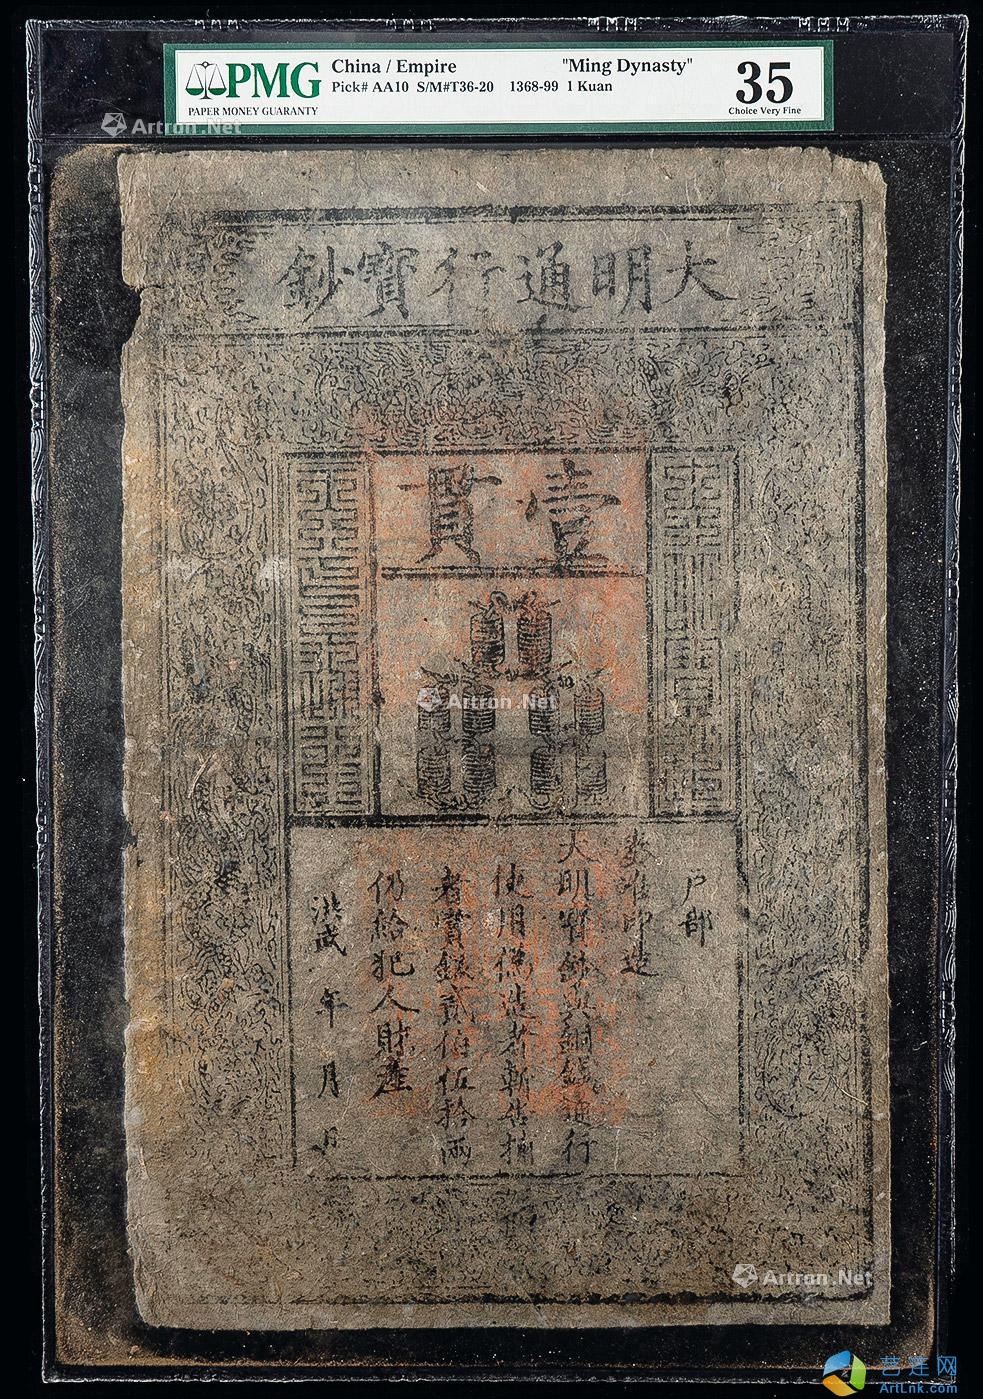 PMG
PAPER MONEY GUARANTY
China / Empire "Ming Dynasty"
Pick# AA10 S/M#T36-20 1368-99 1 Kuan
35
Choice Very Fine
Artron.Net
大明通行寶鈔
壹貫
Artron.Net
戶部
奏准印造
大明寶鈔與銅錢通行
使用僞造者斬告捕
者賞銀貳伯伍拾兩
仍給犯人財產
洪武 年 月 日
Artron.Net
艺连网
ArtLnk.com